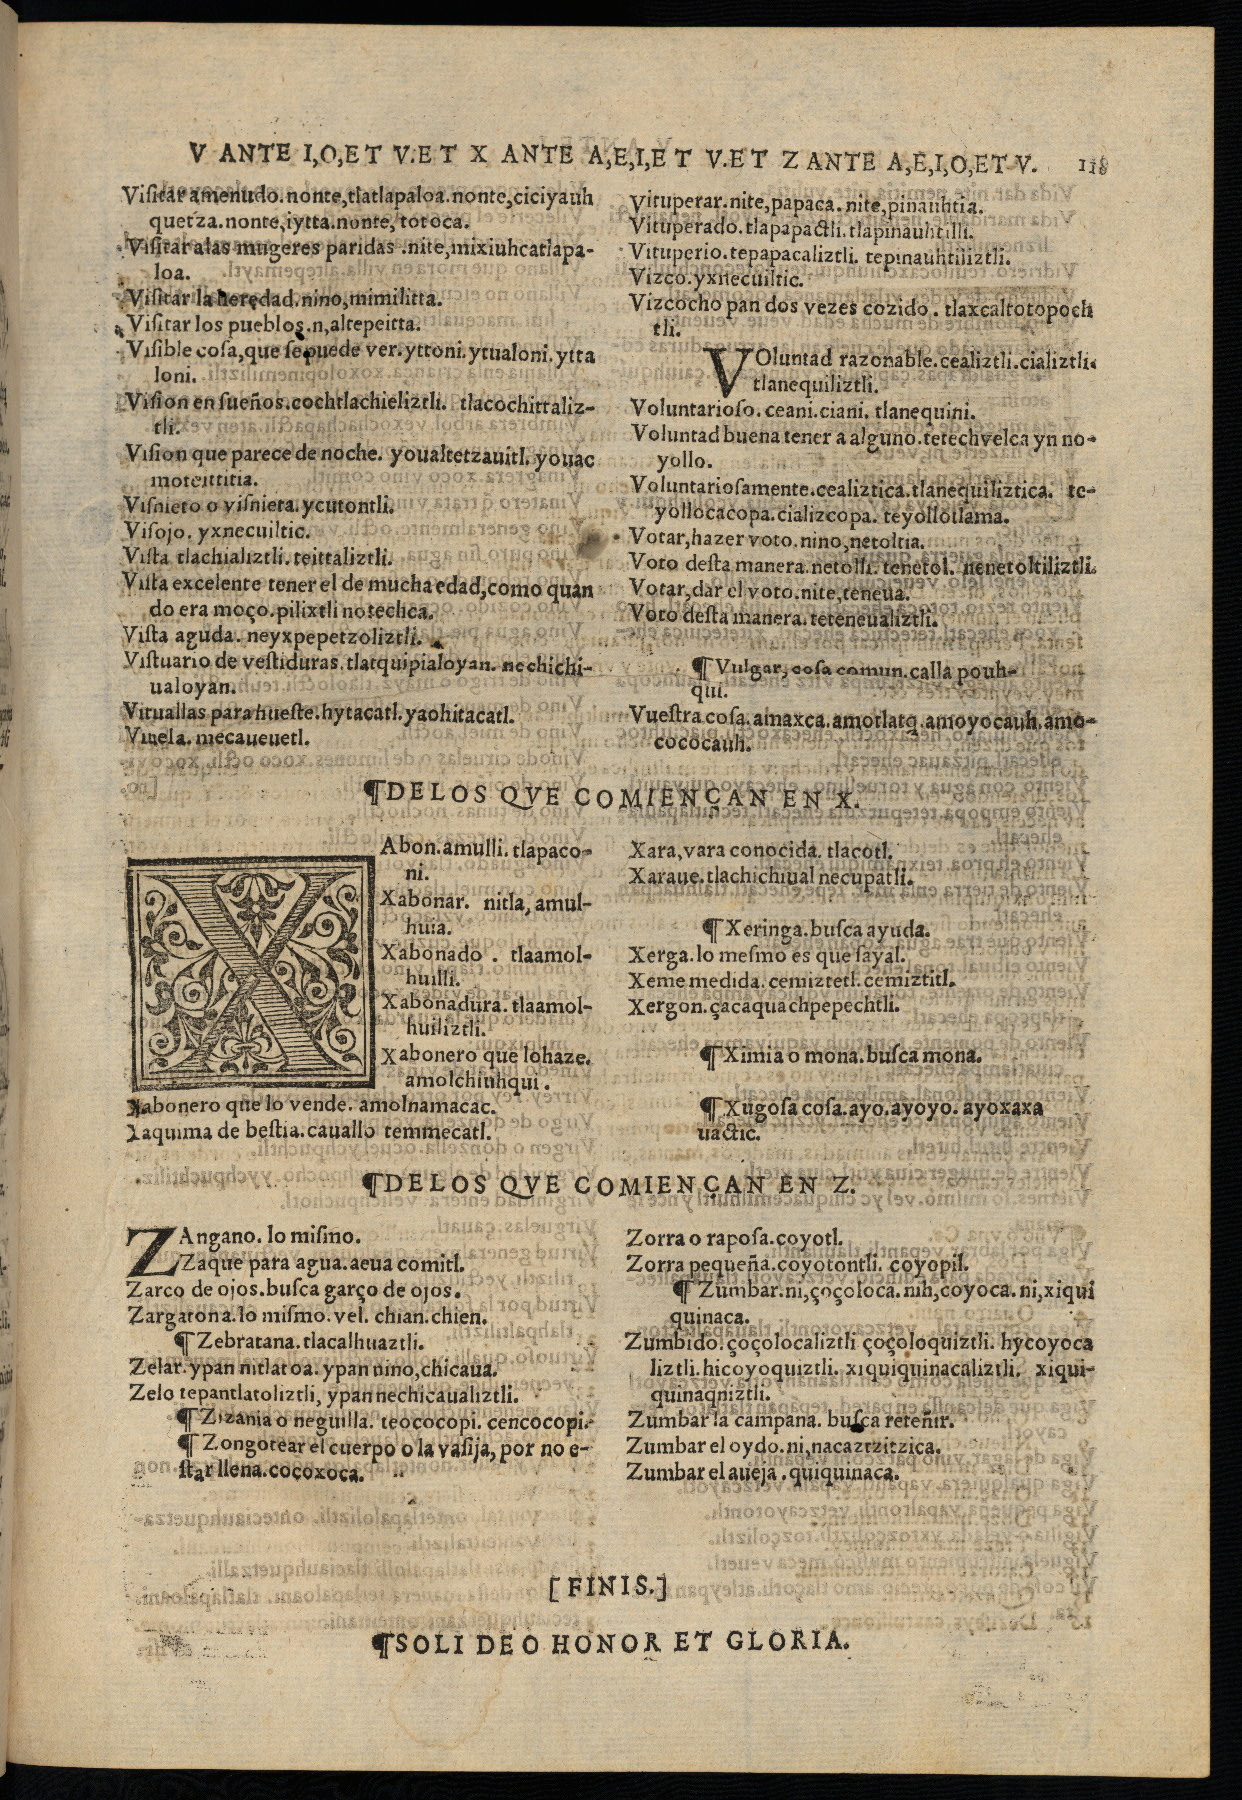 V ANTE I,O,ET V.ET X ANTE A,E,I,ET V.ET Z ANTE A,E,I,O,ET V. 118
Viſitar amenudo.nonte,tlatlapaloa.nonte,ciciyauh
quetza.nonte,iytta.nonte, totoca.
Viſitar alas mugeres paridas .nite,mixiuhcatlapa-
loa.
Viſitar la heredad.nino,mimilitta.
Viſitar los pueblos.n,altepeitta.
Viſible coſa,que ſe puede ver.yttoni.ytualoni.ytta
loni.
Viſion en ſueños.cochtlachieliztli. tlacochittaliz-
tli.
Viſion que parece de noche. youaltetzauitl. youac
moteittitia.
Viſnieto o viſnieta.ycutontli.
Viſojo. yxnecuiltic.
Viſta tlachializtli.teittaliztli.
Viſta excelente tener el de mucha edad,como quan
do era moço.pilixtli notechca.
Viſta aguda. neyxpepetzoliztli.
Viſtuario de veſtiduras.tlatquipialoyan. nechichi-
ualoyan.
Vituallas para hueſte.hytacatl.yaohitacatl.
Viuela. mecaueuetl.
Vituperar.nite,papaca. nite,pinauhtia.
Vituperado.tlapapactli.tlapinauhtilli.
Vituperio.tepapacaliztli. tepinauhtiliztli.
Vizco.yxnecuiltic.
Vizcocho pan dos vezes cozido . tlaxcaltotopoch
tli.
VOluntad razonable.cealiztli.cializtli.
tlanequiliztli.
Voluntarioſo.ceani.ciani. tlanequini.
Voluntad buena tener a alguno.tetechvelca yn no-
yollo.
Voluntarioſamente.cealiztica.tlanequiliztica. te-
yollocacopa.cializcopa. teyollotlama.
Votar,hazer voto.nino,netoltia.
Voto deſta manera.netolli. tenetol. nenetoltiliztli.
Votar,dar el voto.nite,teneua.
Voto deſta manera.teteneualiztli.
¶ Vulgar, coſa comun.calla pouh-
qui.
Vueſtra coſa.amaxca.amotlatq.amoyocauh.amo-
cococauh.
¶DELOS QVE COMIENÇAN EN X.
XAbon.amulli.tlapaco-
ni.
Xabonar. nitla, amul-
huia.
Xabonado . tlaamol-
huilli.
Xabonadura. tlaamol-
huiliztli.
Xabonero que lohaze.
amolchiuhqui.
Xabonero que lo vende. amolnamacac.
Xaquima de beſtia.cauallo temmecatl.
Xara,vara conocida. tlacotl.
Xaraue.tlachichiual necupatli.
¶ Xeringa.buſca ayuda.
Xerga.lo meſmo es que ſayal.
Xeme medida.cemiztetl.cemiztitl.
Xergon.çacaquachpepechtli.
¶ Ximia o mona.buſca mona.
¶ Xugoſa coſa.ayo.ayoyo. ayoxaxa
uactic.
¶DELOS QVE COMIENÇAN EN Z.
ZAngano. lo miſmo.
Zaque para agua.aeua comitl.
Zarco de ojos.buſca garço de ojos.
Zargatona.lo miſmo.vel. chian.chien.
¶ Zebratana.tlacalhuaztli.
Zelar.ypan nitlatoa.ypan nino,chicaua.
Zelo tepantlatoliztli, ypan nechicaualiztli.
¶ Zizania o neguilla. teococopi. cencocopi.
¶ Zongotear el cuerpo o la vaſija, por no e-
ſtar llena.coçoxoca.
Zorra o rapoſa.coyotl.
Zorra pequeña.coyotontli. coyopil.
¶ Zumbar.ni,çoçoloca.nih,coyoca.ni,xiqui
quinaca.
Zumbido.çoçolocaliztli çoçoloquiztli. hycoyoca
liztli.hicoyoquiztli. xiquiquinacaliztli. xiqui-
quinaqniztli.
Zumbar la campana. buſca reteñir.
Zumbar el oydo.ni,nacaztzitzica.
Zumbar el aueja .quiquinaca.
[FINIS.]
¶SOLI DEO HONOR ET GLORIA.